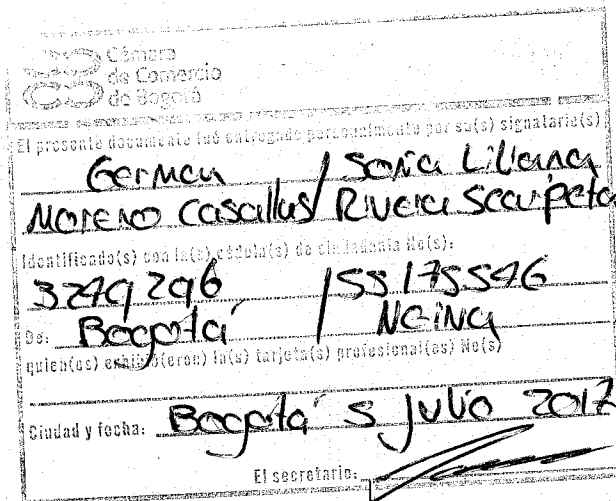 Cámara
de Comercio
de Bogotá
El presente documento fué entregado personalmente por su(s) signatario(s)
German / Sonia Liliana
Moreno Casallas / Rivera Scarpeta
Identificado(s) con la(s) cédula(s) de ciudadanía No(s):
3249296 / 55175546
De: Bogotá / Neiva
quien(es) exhibió(eron) la(s) tarjeta(s) profesional(es) No(s)
Ciudad y fecha: Bogotá 5 Julio 2012
El secretario: